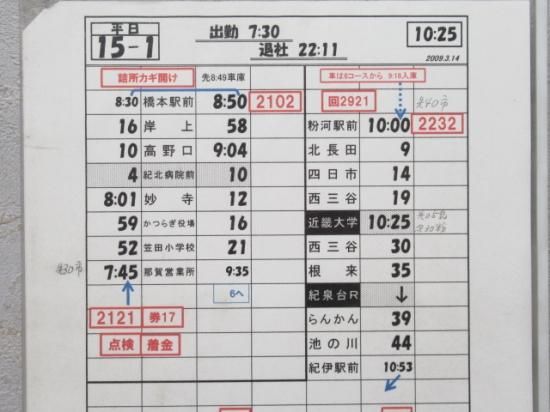 平日
15-1
出勤 7:30
退社 22:11
10:25
2009.3.14
詰所カギ開け
先8:49車庫
車は6コースから 9:18入庫
8:30 橋本駅前 8:50
2102
回2921
16 岸上 58
粉河駅前 10:00
2232
10 高野口 9:04
北長田 9
4 紀北病院前 10
四日市 14
8:01 妙寺 12
西三谷 19
59 かつらぎ役場 16
近畿大学 10:25
52 笠田小学校 21
西三谷 30
7:45 那賀営業所 9:35
根来 35
6へ
紀泉台R ↓
2121 券17
らんかん 39
点検 着金
池の川 44
紀伊駅前 10:53